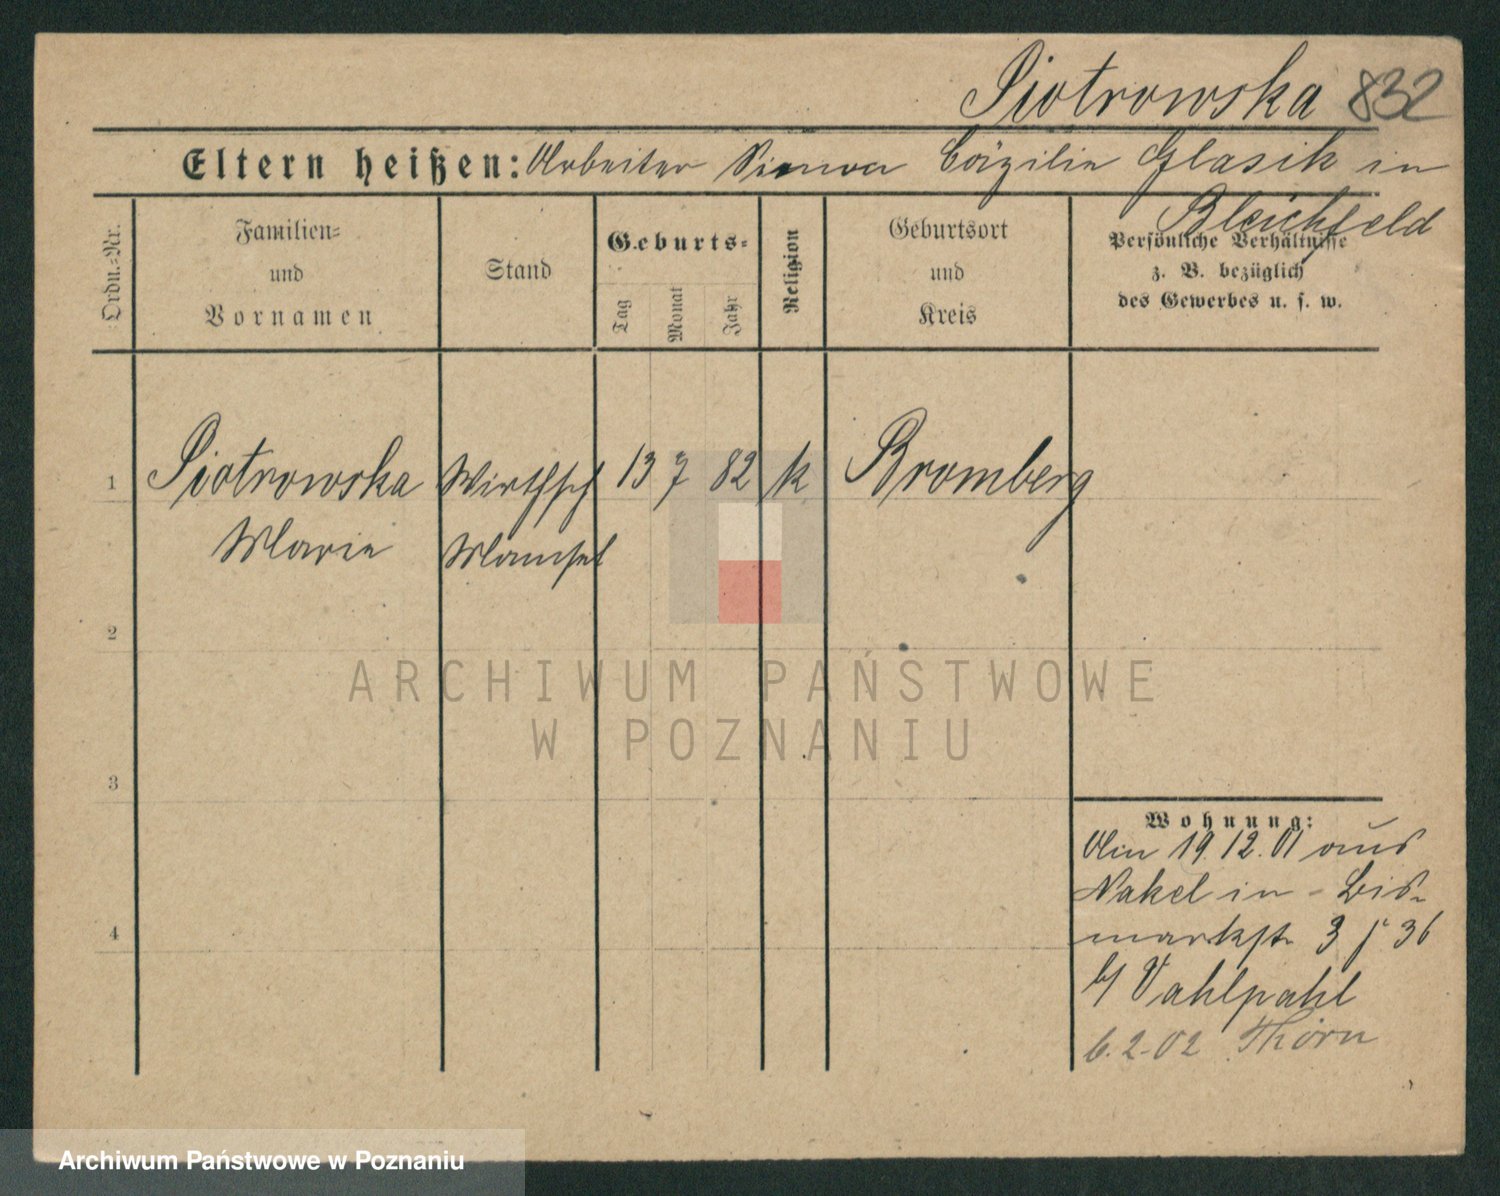 Piotrowska 832
Eltern heißen: Arbeiter Cäzilie Glasik in
Bleichfeld
Ordn.-Nr.
Familien-
und
Vornamen
Stand
Geburts-
Tag
Monat
Jahr
Religion
Geburtsort
und
Kreis
Persönliche Verhältnisse
z. B. bezüglich
des Gewerbes u. s. w.
1 Piotrowska Wirthsch 13 7 82 k Bromberg
Marie Mamsel
2
3
4
Wohnung:
Am 19.12.01 aus
Nakel in - Bis-
markstr 3 36
b/ Vahlpahl
6.2.02 Thorn
ARCHIWUM PAŃSTWOWE
W POZNANIU
Archiwum Państwowe w Poznaniu